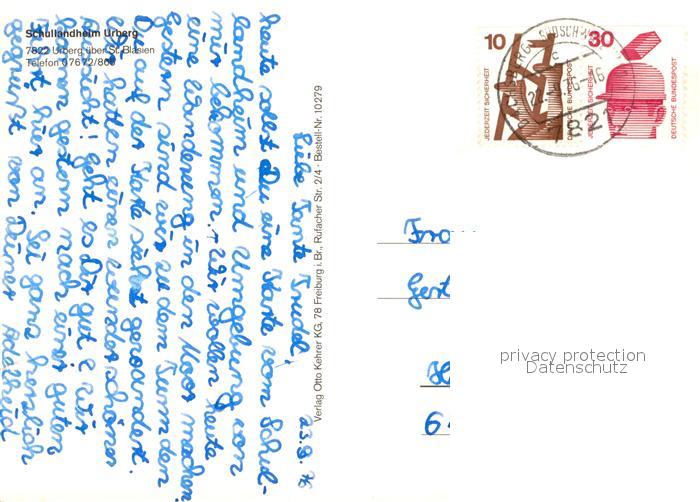 Schullandheim Urberg
7822 Urberg über St. Blasien
Telefon 07672/
Verlag Otto Kehrer KG, 78 Freiburg i. Br., Rufacher Str. 2/4 · Bestell-Nr. 10279
23.9. 76
Liebe Tante Trudel.
heute sollst Du eine Karte vom Schul-
landheim und Umgebung von
mir bekommen. Wir wollen heute
eine Wanderung in den Moor machen.
gestern sind wir zu dem Turm den
Du auf der Karte siehst gewandert.
Wir hatten einen wunderschöne
Aussicht! geht es Dir gut? Wir
kamen gestern nach einer guten
hier an. Sei ganz herzlich
gegrüßt von Deiner Adelheid
10
JEDERZEIT SICHERHEIT
DEUTSCHE BUNDESPOST
30
JEDERZEIT SICHERHEIT
DEUTSCHE BUNDESPOST
7821
privacy protection
Datenschutz